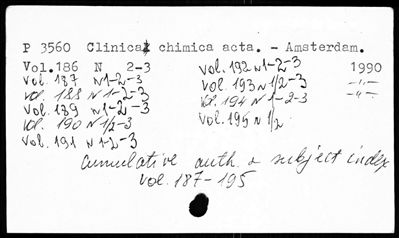 P 3560 Clinica chimica acta. - Amsterdam.
Vol.186 N 2-3
vol. 187 N 1-2-3
vol. 188 N 1-2-3
vol. 189 N 1-2-3
vol. 190 N 1/2-3
vol. 191 N 1-2-3
vol. 192 N 1-2-3 1990
vol. 193 N 1/2-3 -"-
vol. 194 N 1-2-3 -"-
vol. 195 N 1/2
Cumulative auth. & subject index
vol. 187-195